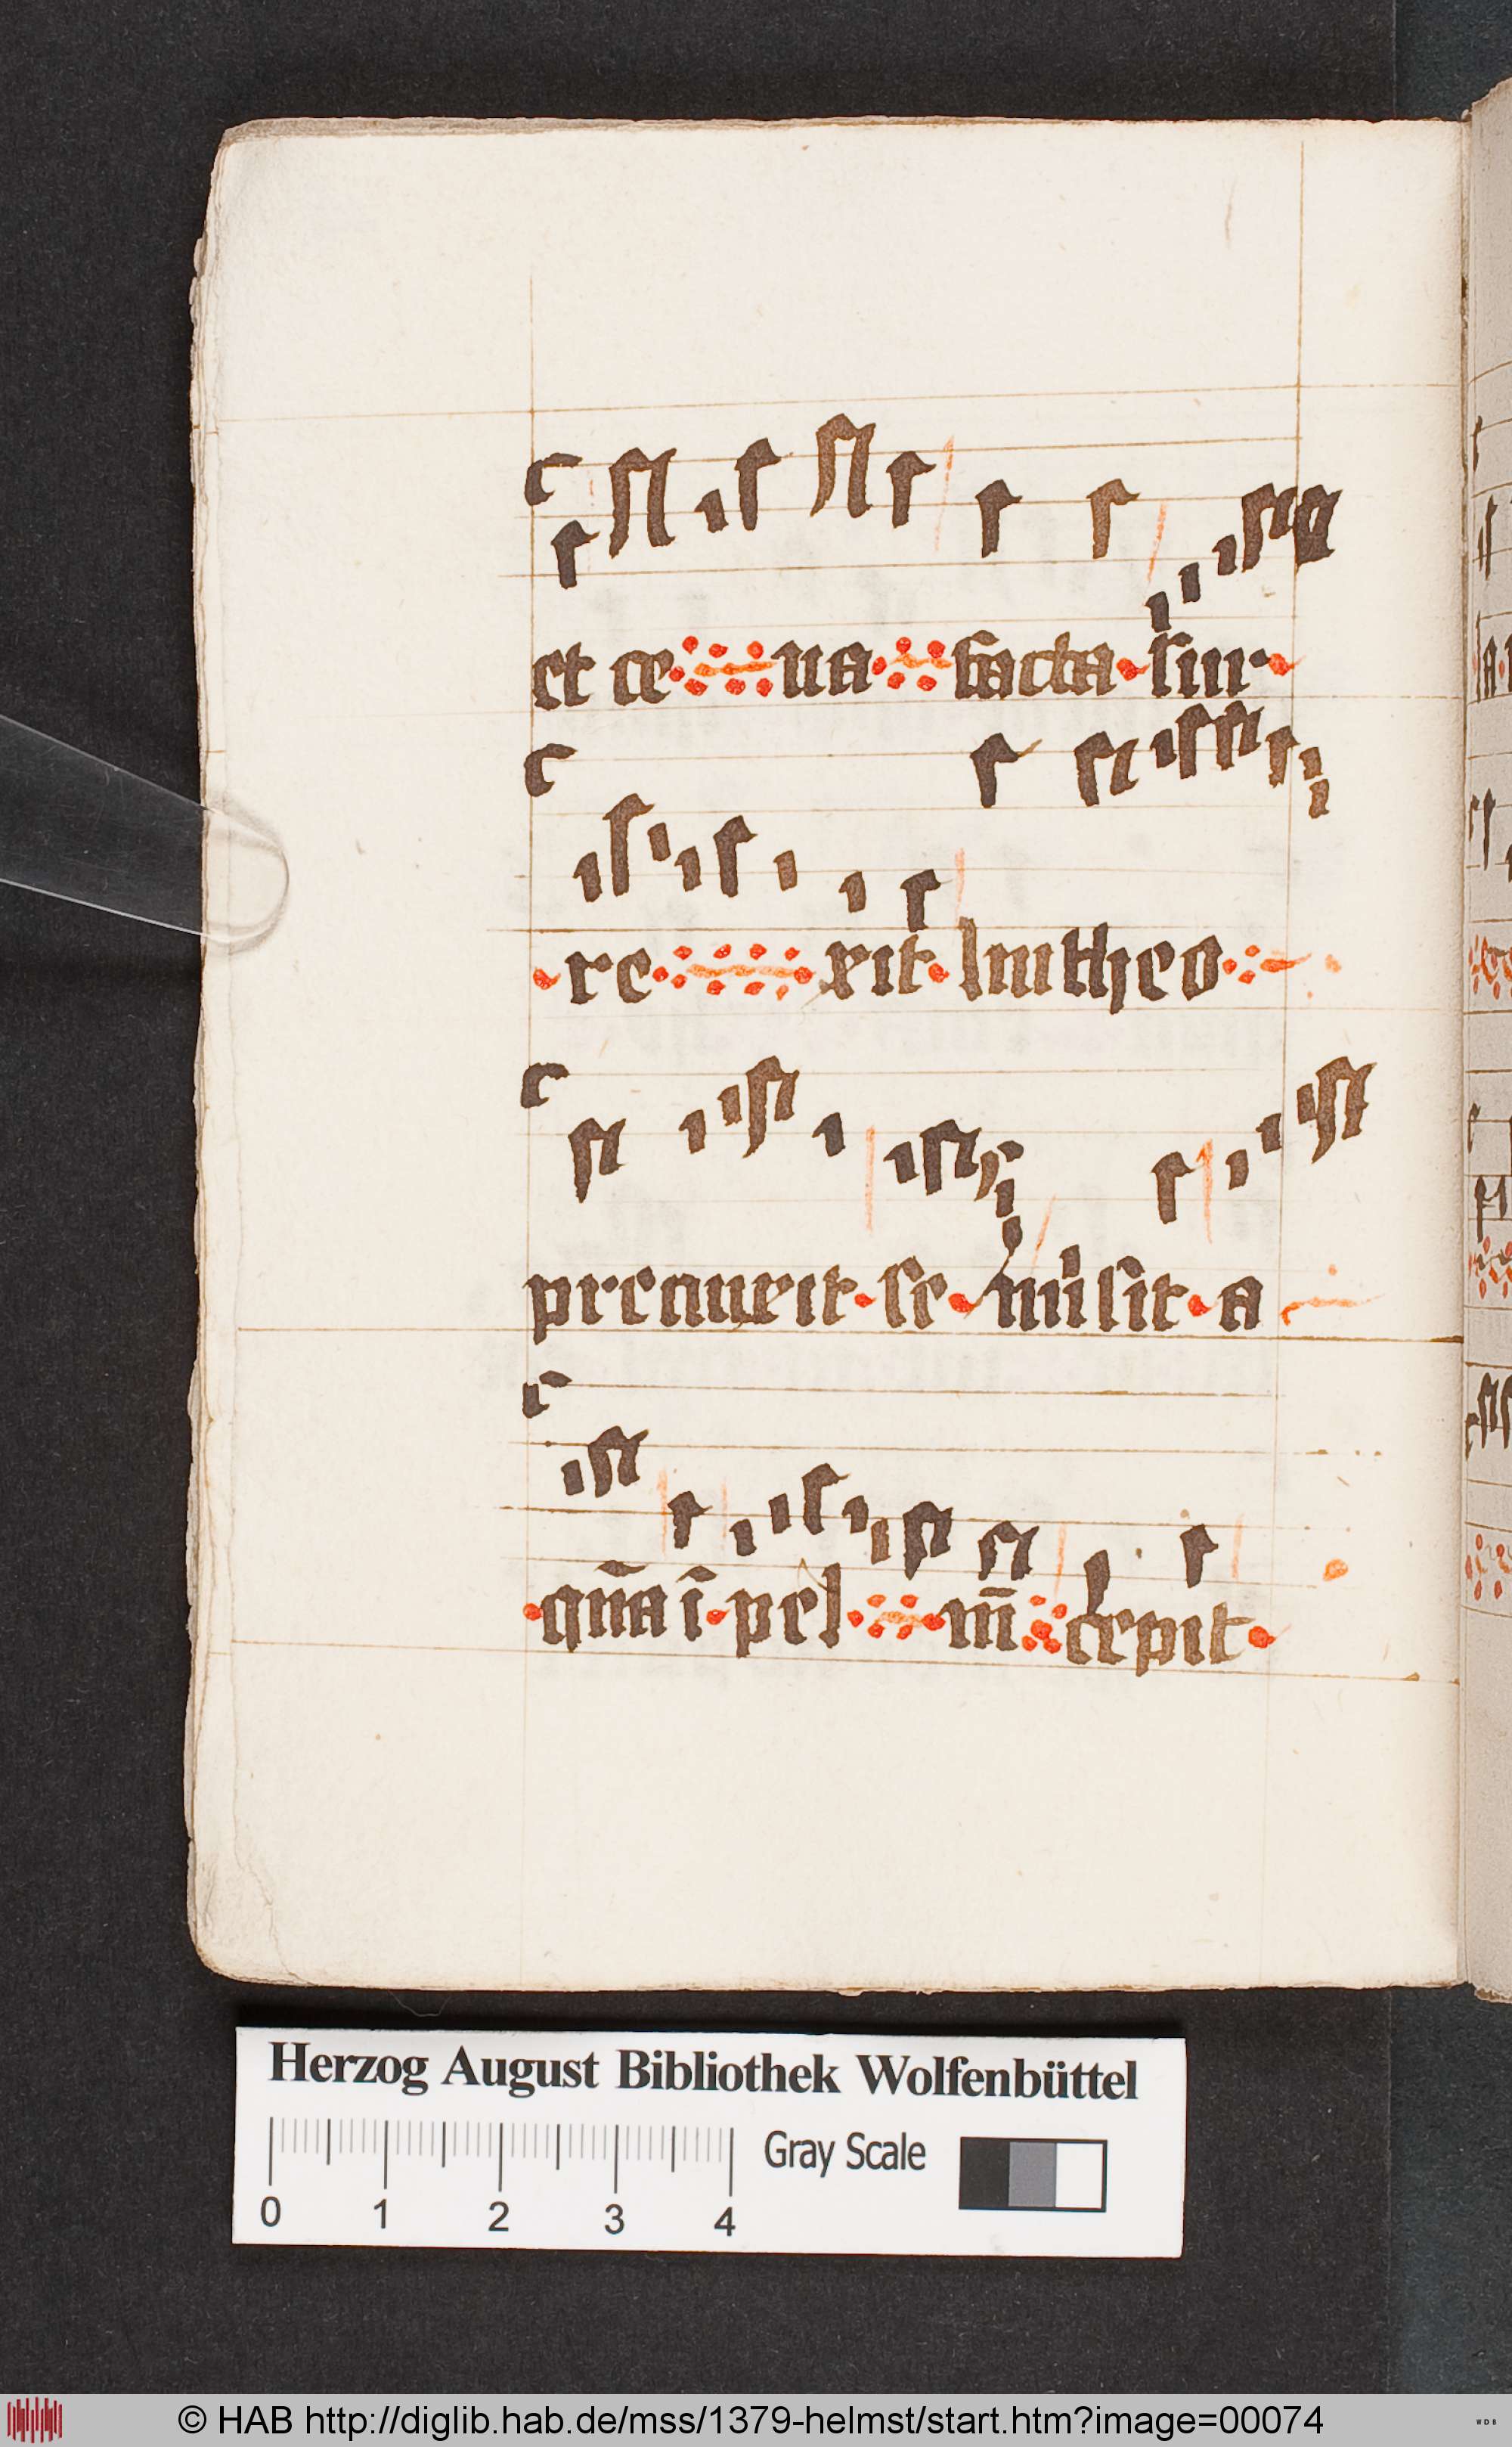 et ce ua facta sur
re exit lintheo
precinxit se misit a
q̄uā ī pel m̄ cepit
Herzog August Bibliothek Wolfenbüttel
Gray Scale
0 1 2 3 4
© HAB http://diglib.hab.de/mss/1379-helmst/start.htm?image=00074